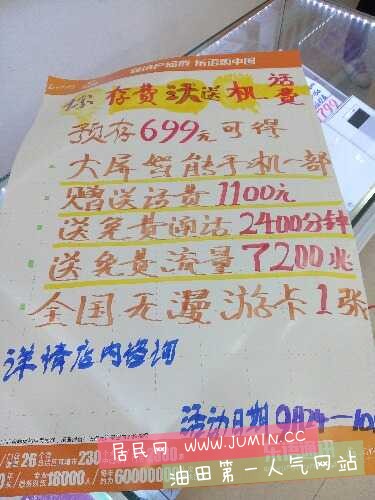 存费送机 话费
预存699元可得
大屏智能手机一部
赠送话费1100元
送免费通话2400分钟
送免费流量7200兆
全国无漫游卡1张
详情店内咨询
活动日期9月24—10
居民网 WWW.JUMIN.CC
油田第一人气网站
26
230
18000
6000000
799